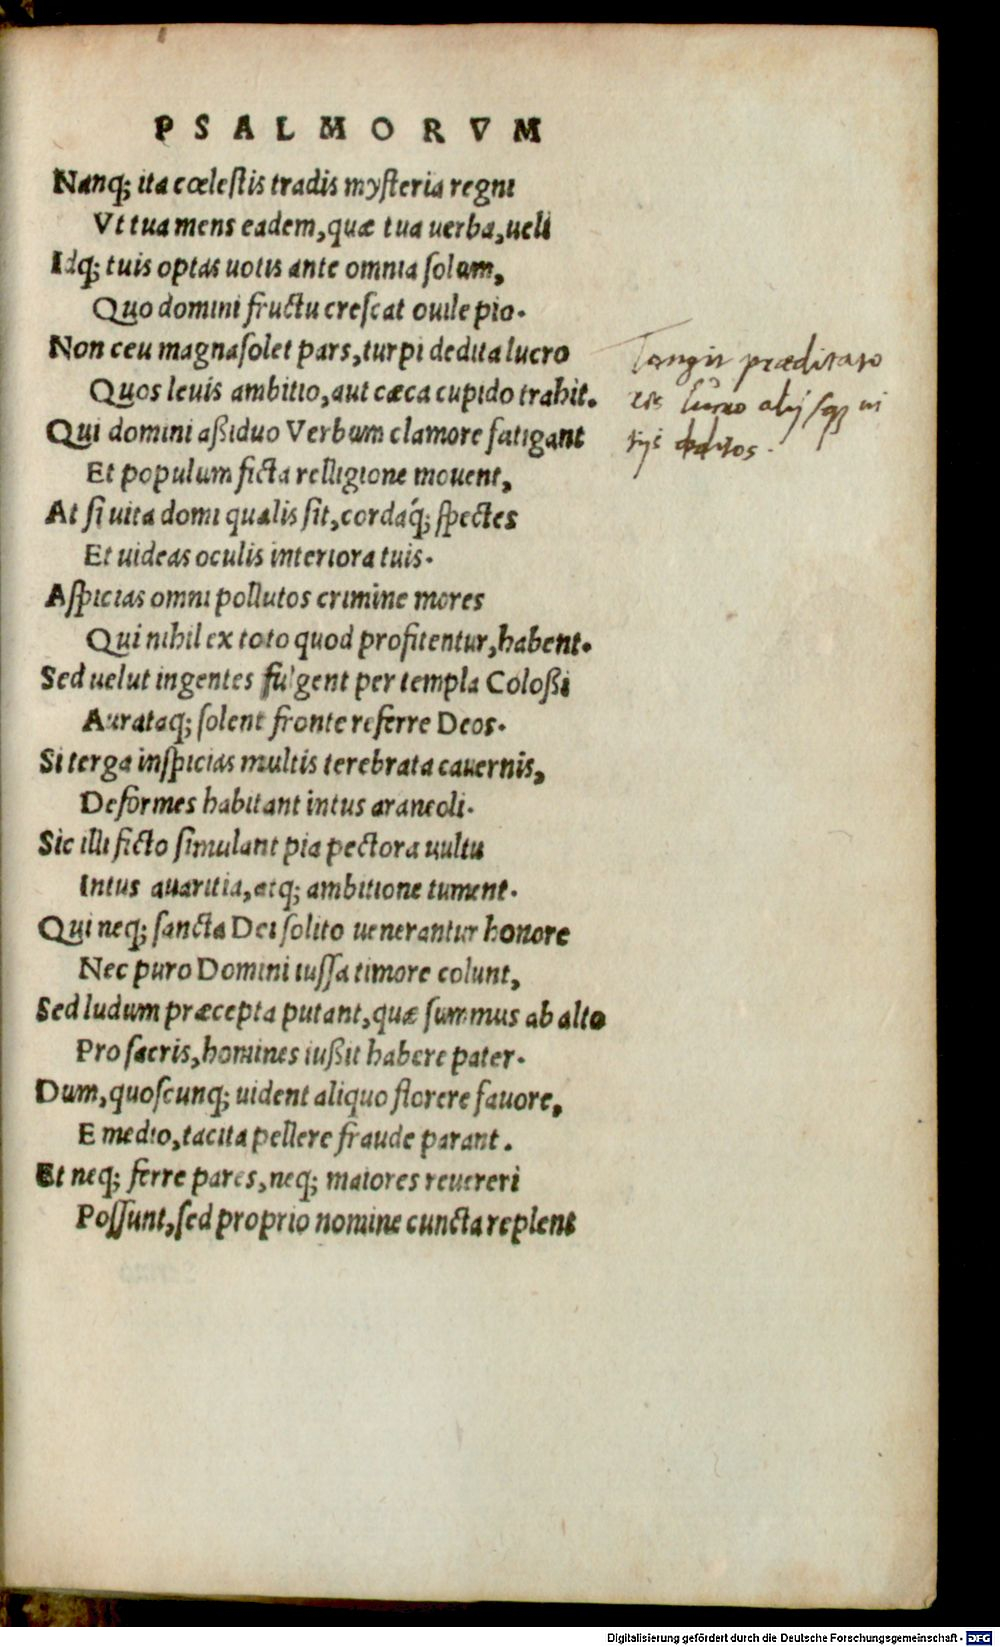 PSALMORVM
Nanq; ita cœlestis tradis mysteria regni
Vt tua mens eadem, quæ tua uerba, ueli
Idq; tuis optas uotis ante omnia solum,
Quo domini fructu crescat ouile pio.
Non ceu magna solet pars, turpi dedita lucro
Quos leuis ambitio, aut cæca cupido trahit.
Qui domini aßiduo Verbum clamore fatigant
Et populum ficta relligione mouent,
At si uita domi qualis sit, cordaq́; spectes
Et uideas oculis interiora tuis.
Aspicias omni pollutos crimine mores
Qui nihil ex toto quod profitentur, habent.
Sed uelut ingentes fulgent per templa Coloßi
Aurataq; solent fronte referre Deos.
Si terga inspicias multis terebrata cauernis,
Deformes habitant intus araneoli.
Sic illi ficto simulant pia pectora uultu
Intus auaritia, atq; ambitione tument.
Qui neq; sancta Dei solito uenerantur honore
Nec puro Domini iussa timore colunt,
Sed ludum præcepta putant, quæ summus ab alto
Pro sacris, homines iußit habere pater.
Dum, quoscunq; uident aliquo florere fauore,
E medio, tacita pellere fraude parant.
Et neq; ferre pares, neq; maiores reuereri
Possunt, sed proprio nomine cuncta replent
Tangit prædicato
res lucro alijsq; ui
tijs deditos.
Digitalisierung gefördert durch die Deutsche Forschungsgemeinschaft - DFG